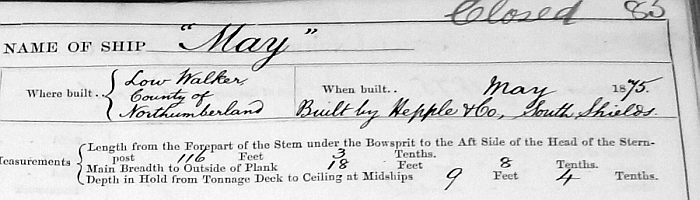 Closed 85
NAME OF SHIP "May"
Where built.. Low Walker, County of Northumberland
When built.. May 1875.
Built by Hepple & Co, South Shields.
Measurements
Length from the Forepart of the Stem under the Bowsprit to the Aft Side of the Head of the Stern-
post 116 Feet 3 Tenths.
Main Breadth to Outside of Plank 18 Feet 8 Tenths.
Depth in Hold from Tonnage Deck to Ceiling at Midships 9 Feet 4 Tenths.